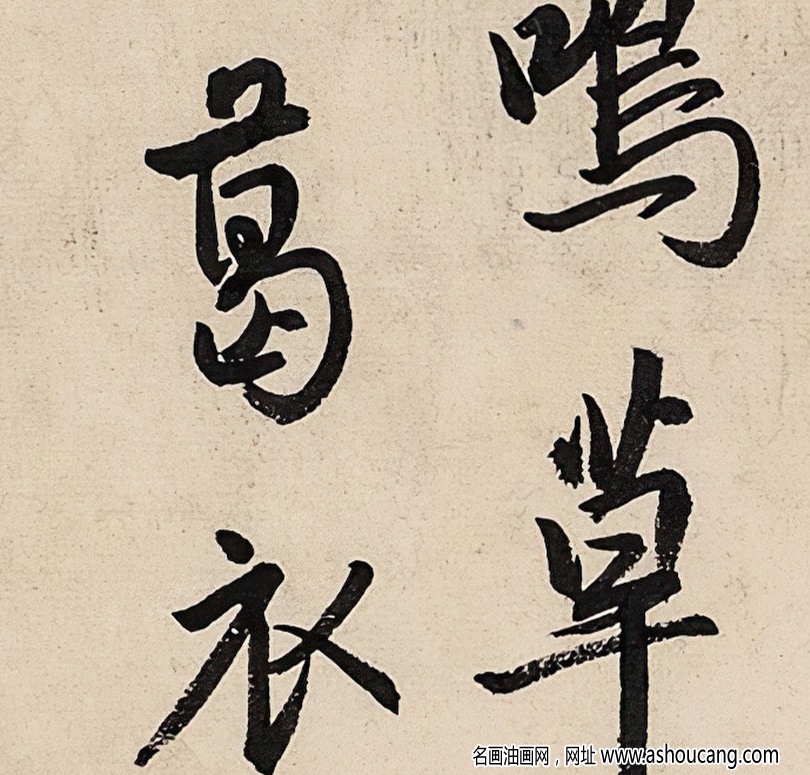 鳴草
葛衣
名画油画网，网址 www.ashoucang.com